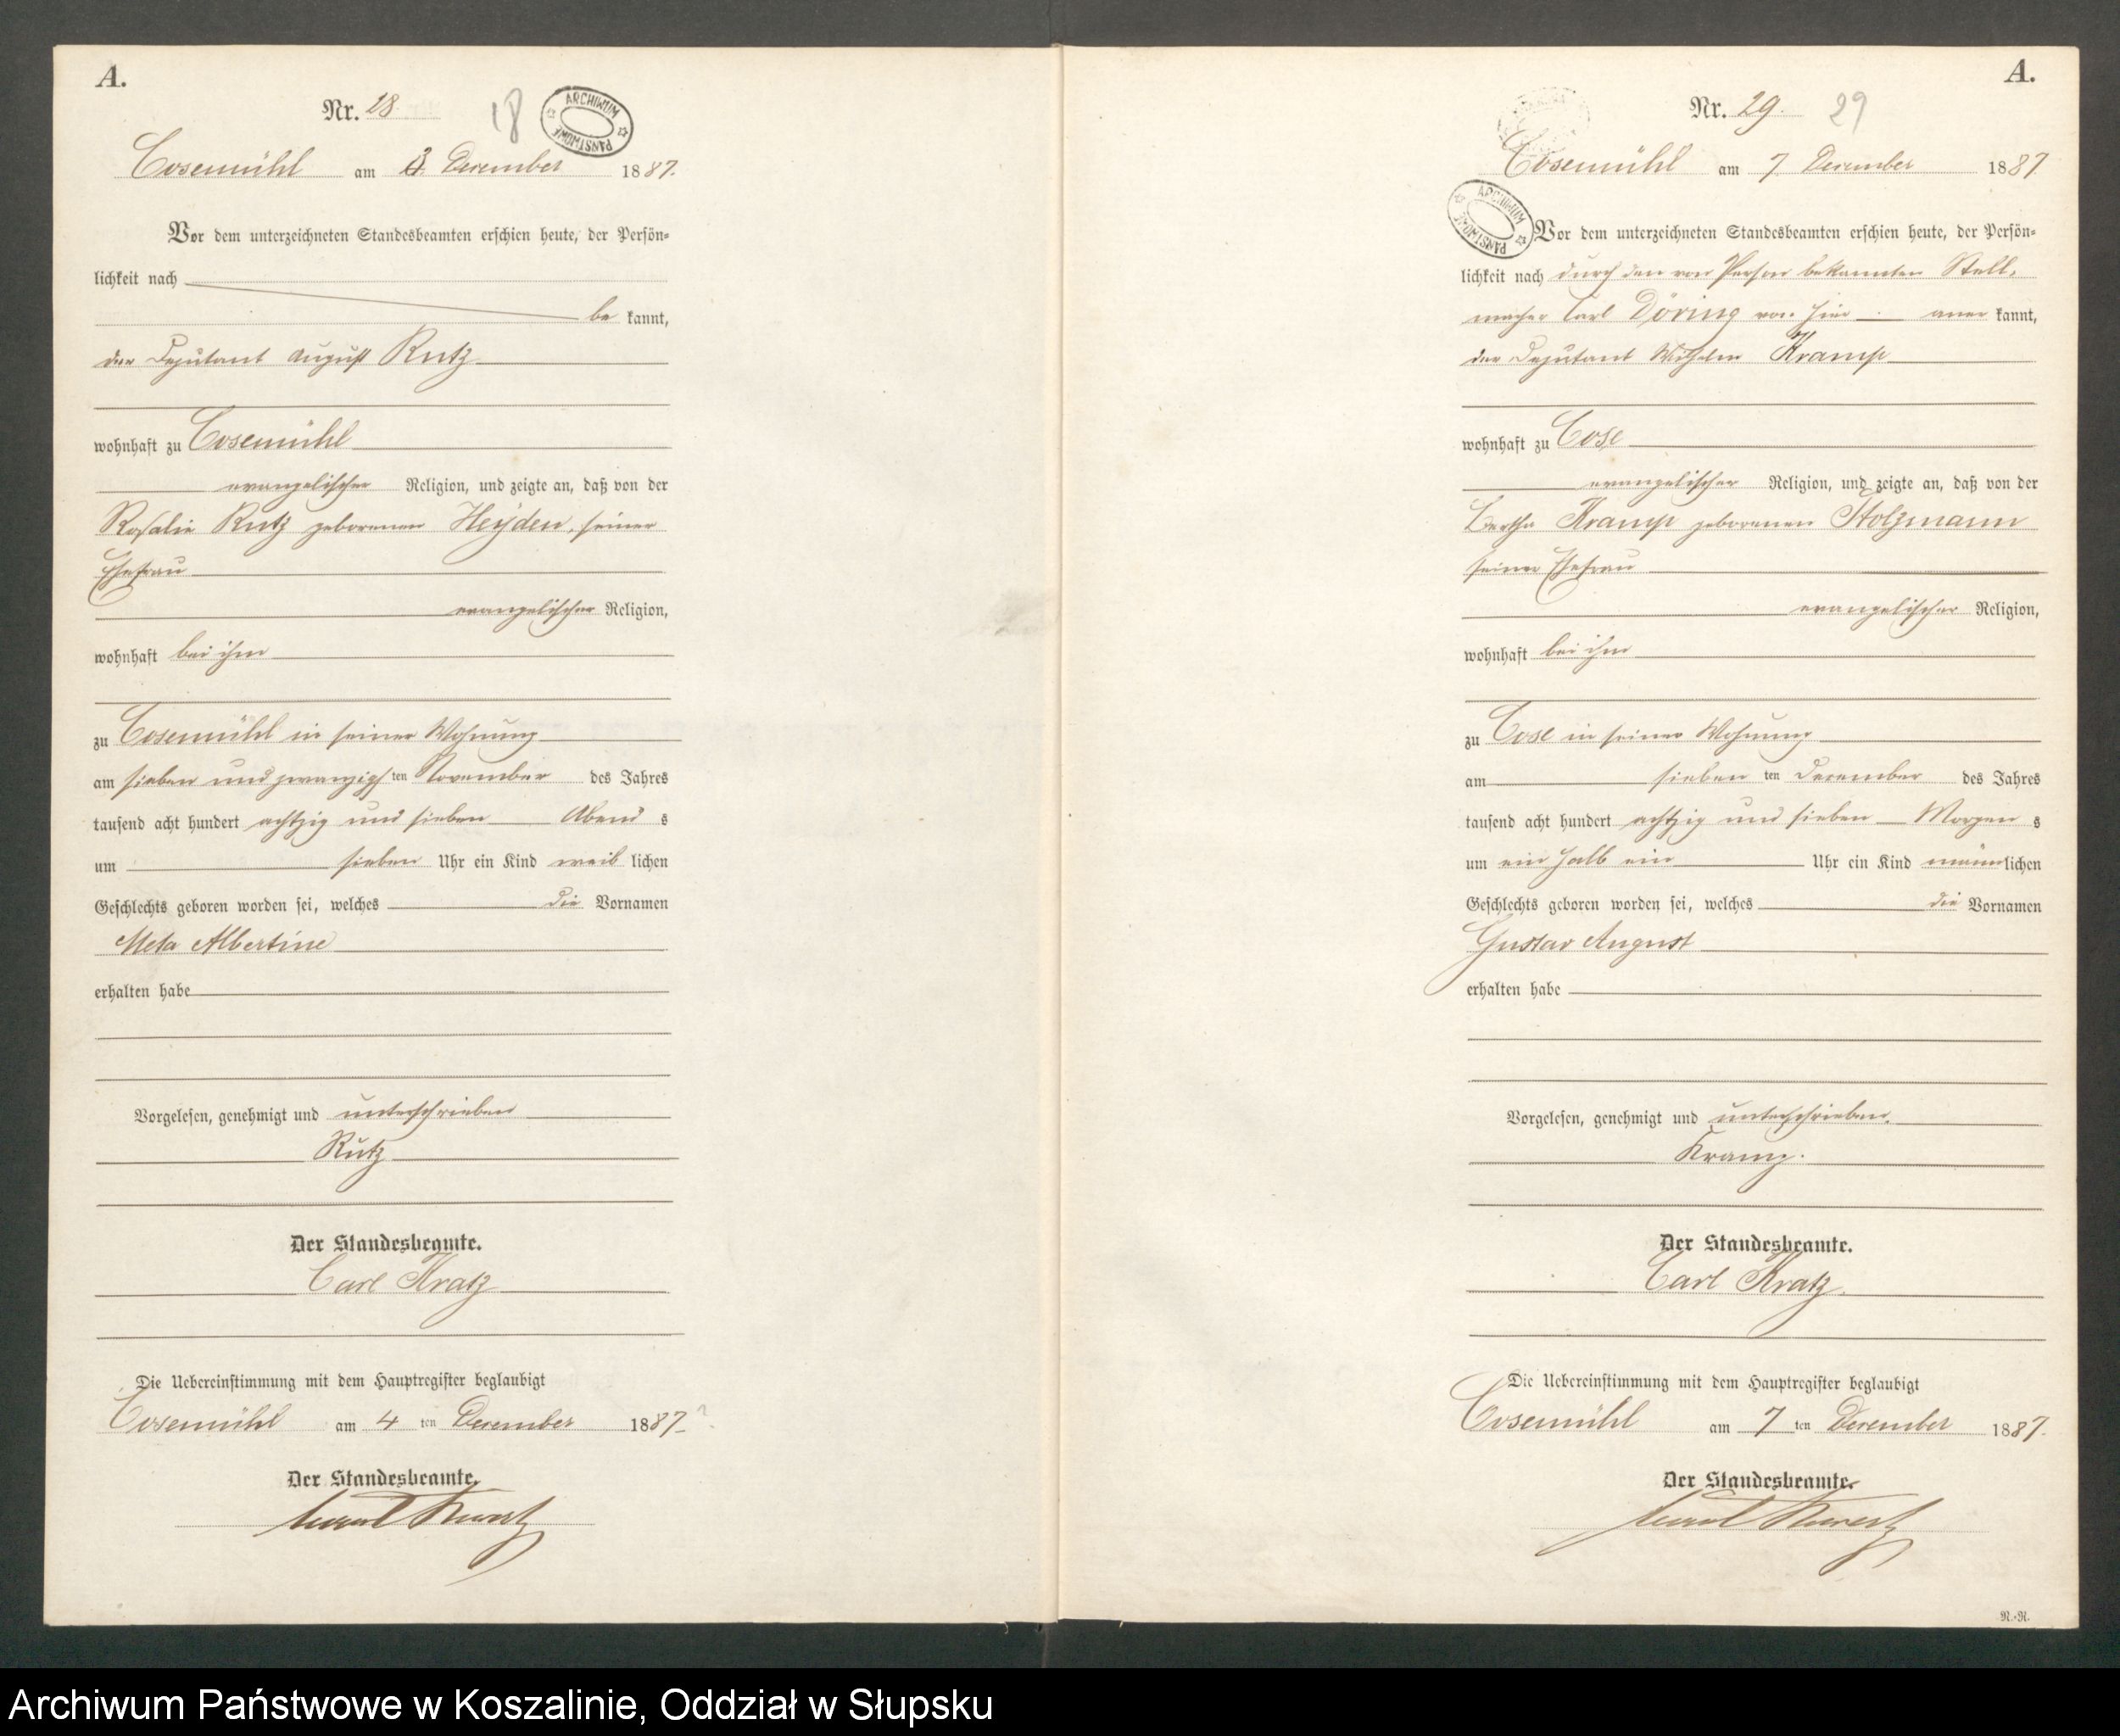 A.
Nr. 28.
18
ARCHIWUM PAŃSTWOWE
Cosemühl am 3. December 1887.
Vor dem unterzeichneten Standesbeamten erschien heute, der Persön-
lichkeit nach
be kannt,
der Deputant August Rutz
wohnhaft zu Cosemühl
evangelischer Religion, und zeigte an, daß von der
Rosalie Rutz geborenen Heyden, seiner
Ehefrau
evangelischer Religion,
wohnhaft bei ihm
zu Cosemühl in seiner Wohnung
am sieben und zwanzigsten November des Jahres
tausend acht hundert achtzig und sieben Abend s
um sieben Uhr ein Kind weib lichen
Geschlechts geboren worden sei, welches die Vornamen
Meta Albertine
erhalten habe
Vorgelesen, genehmigt und unterschrieben
Rutz
Der Standesbeamte.
Carl Kratz
Die Uebereinstimmung mit dem Hauptregister beglaubigt
Cosemühl am 4 ten December 1887
Der Standesbeamte.
A.
Nr. 29. 29
Cosemühl am 7. December 1887
ARCHIWUM PAŃSTWOWE
Vor dem unterzeichneten Standesbeamten erschien heute, der Persön-
lichkeit nach durch den von Person bekannten Stell-
macher Carl Döring von hier aner kannt,
der Deputant Wilhelm Kramp
wohnhaft zu Cose
evangelischer Religion, und zeigte an, daß von der
Bertha Kramp geborenen Stolzmann
seiner Ehefrau
evangelischer Religion,
wohnhaft bei ihm
zu Cose in seiner Wohnung
am sieben ten December des Jahres
tausend acht hundert achtzig und sieben Morgen s
um ein halb ein Uhr ein Kind männlichen
Geschlechts geboren worden sei, welches die Vornamen
Gustav August
erhalten habe
Vorgelesen, genehmigt und unterschrieben.
Kramp.
Der Standesbeamte.
Carl Kratz.
Die Uebereinstimmung mit dem Hauptregister beglaubigt
Cosemühl am 7 ten December 1887.
Der Standesbeamte.
R.-R.
Archiwum Państwowe w Koszalinie, Oddział w Słupsku